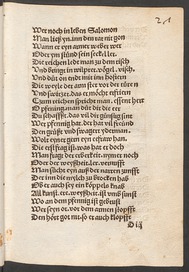 Wer noch in leben Salomon
Man ließ yn inn den rat nit gon
Wann er eyn armer weber wer
Oder jm stünd sein seckel ler
Die reichen ledt man zu dem tisch
Und bringt in wilpret, vögel, visch,
Und důt on end mit inn hofieren
Die wyle der arm stet vor der türen
Und switzt das er möcht erfrieren
Zum reichen spricht man essent herr
O pfening man důt dir die eer
Du schaffst das vil dir günstig sint
Wer pfennig hat der hat vil fründ
Den grüßt und swagert yderman
Wolt eyner gern ein eefrow han
Die erst frag ist was hat er doch
Man fragt der erberkeit nym me noch
Oder der wyßheit, ler, vernunfft
Man sůcht eyn uß der narren zunfft
Der inn die mylch zu brocken hab
Ob er auch sey ein köppels knab
All kunst, eer, wyßheit, ist umb sunst
Wo an dem pfennig ist gebrust
Wer syn or vor dem armen stopfft
Den hört got nit so er auch klopfft
Diß